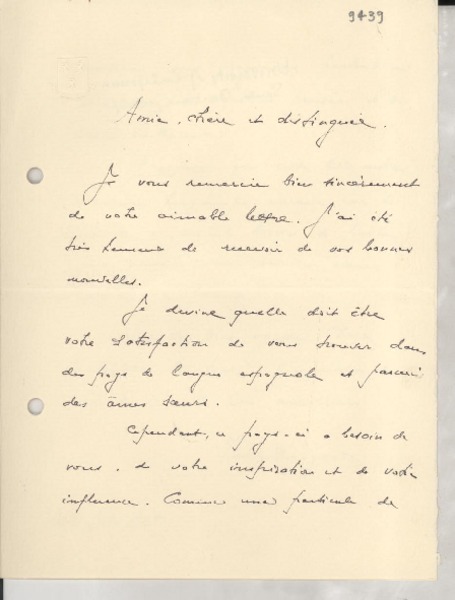 9439
Amie, chère et distinguée.
Je vous remercie bien sincèrement
de votre aimable lettre. J'ai été
très heureux de recevoir de vos bonnes
nouvelles.
Je devine quelle doit être
votre satisfaction de vous trouver dans
des pays de langue espagnole et parmi
des âmes sœurs.
Cependant, ce pays-ci a besoin de
vous, de votre inspiration et de votre
influence. Comme une particule de